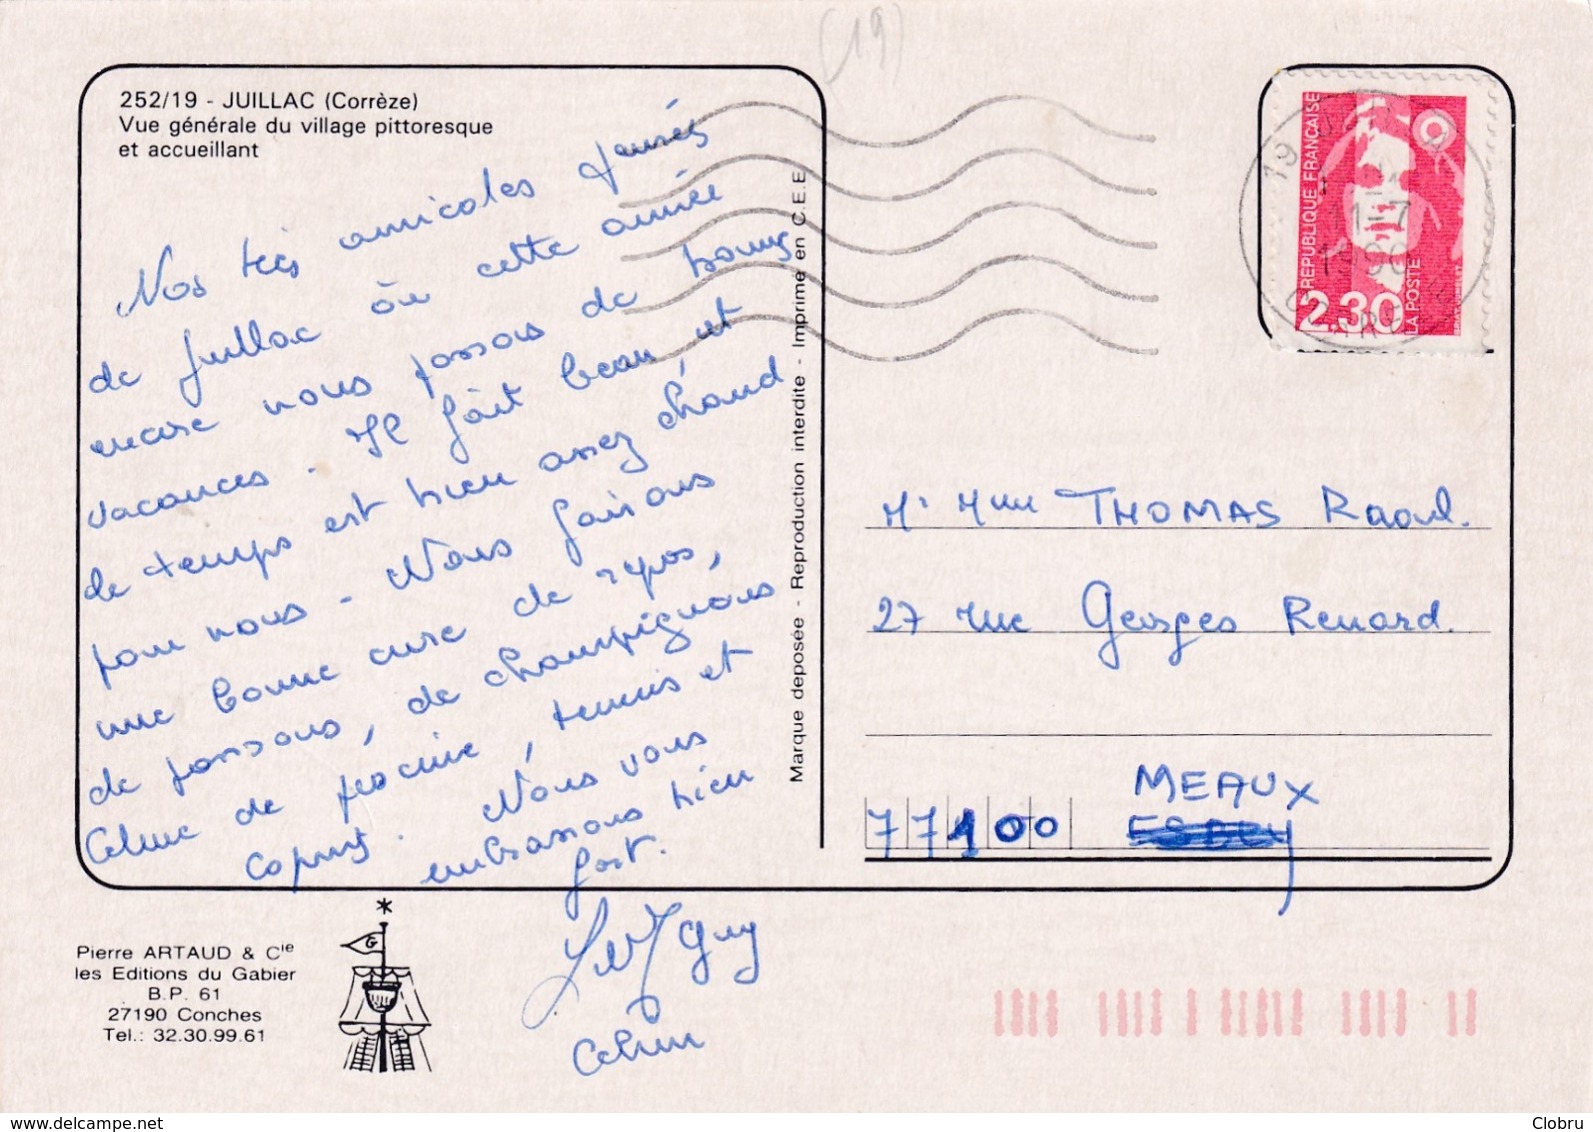 (19)
252/19 - JUILLAC (Corrèze)
Vue générale du village pittoresque
et accueillant
Nos très amicales pensées
de Juillac où cette année
encore nous passons de bonnes
vacances. Il fait beau, et
de temps est bien assez chaud
pour nous. Nous faisons
une bonne cure de repos,
de poissons, de champignons
Céline de piscine, tennis et
copains. Nous vous
embrassons bien
fort.
Guy
Céline
Marque deposée - Reproduction interdite - Imprimé en C.E.E.
REPUBLIQUE FRANÇAISE
2,30
LA POSTE
11-7
CORREZE
Mr Mme THOMAS Raoul.
27 rue Georges Renard.
MEAUX
77100 ESBLY
Pierre ARTAUD & Cie
les Editions du Gabier
B.P. 61
27190 Conches
Tel.: 32.30.99.61
G
Clobru